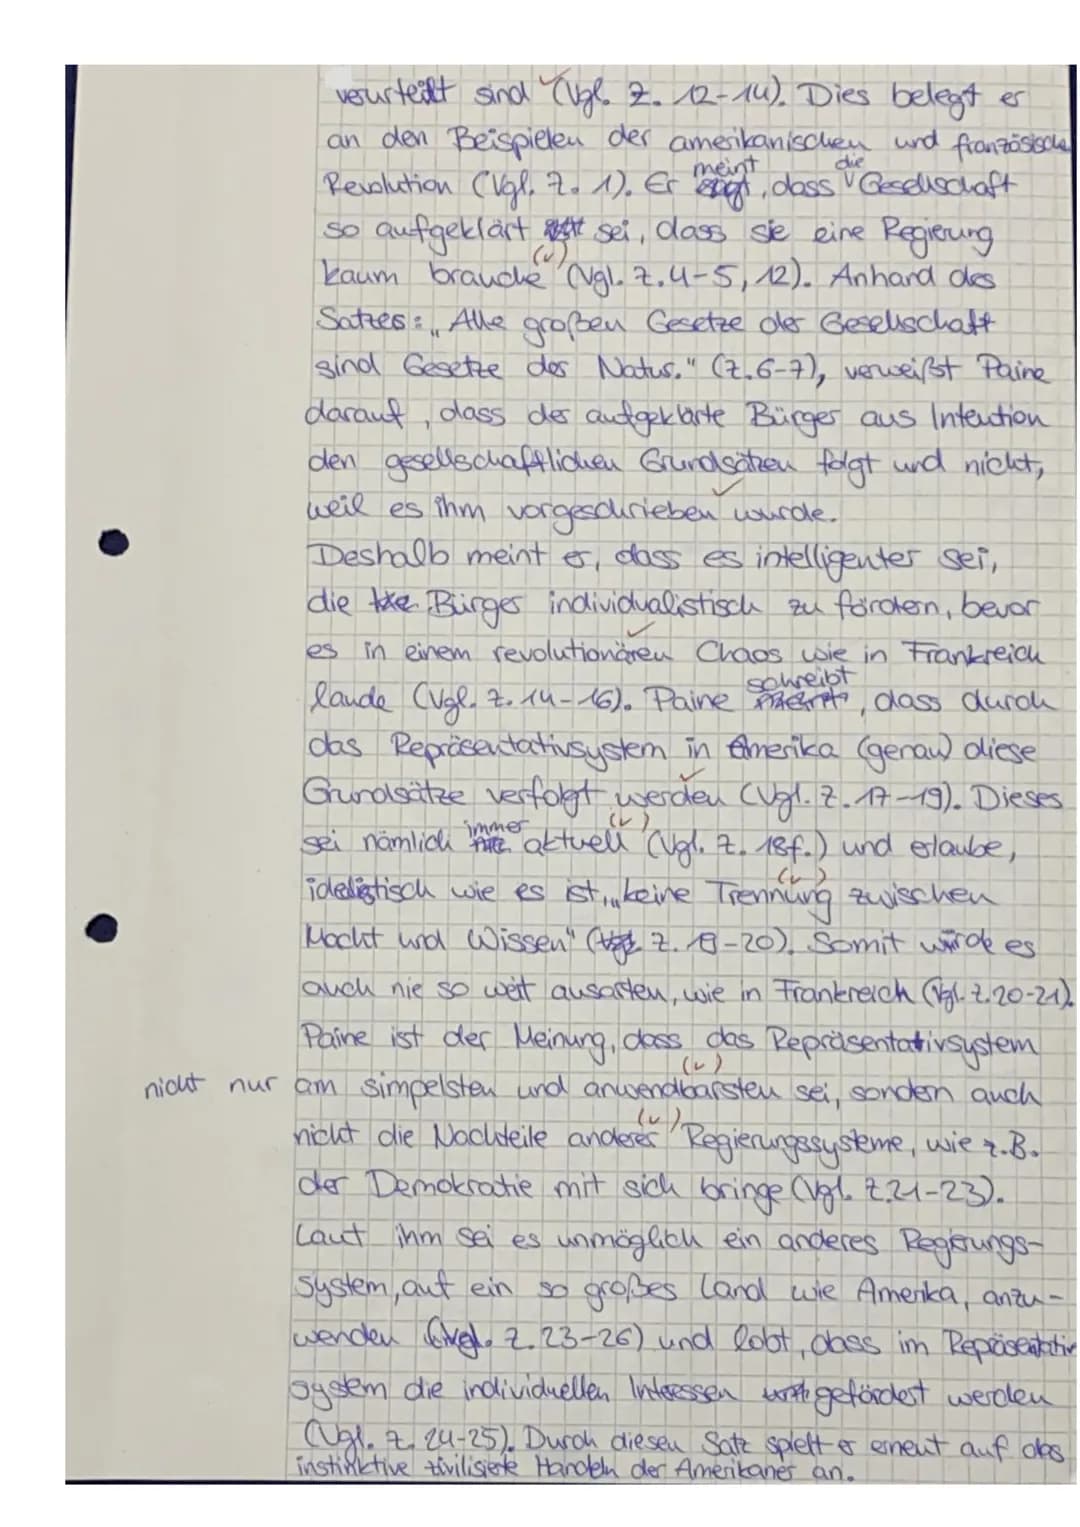 verurteilt sind (Vgl. Z. 12-14). Dies belegt er
an den Beispielen der amerikanischen und französische
Revolution (Vgl. Z. 1). Er meint, dass die Gesellschaft
so aufgeklärt sei, dass sie eine Regierung
kaum brauche (Vgl. Z. 4-5, 12). Anhand des
Satzes: „Alle großen Gesetze der Gesellschaft
sind Gesetze der Natur." (Z. 6-7), verweißt Paine
darauf, dass der aufgeklärte Bürger aus Intention
den gesellschaftlichen Grundsätzen folgt und nicht,
weil es ihm vorgeschrieben wurde.
Deshalb meint er, dass es intelligenter sei,
die Bürger individualistisch zu fördern, bevor
es in einem revolutionären Chaos wie in Frankreich
lande (Vgl. Z. 14-16). Paine schreibt, dass durch
das Repräsentativsystem in Amerika (genau) diese
Grundsätze verfolgt werden (Vgl. Z. 17-19). Dieses
sei nämlich immer aktuell (Vgl. Z. 18f.) und erlaube,
idealistisch wie es ist, „keine Trennung zwischen
Macht und Wissen" (Z. 19-20). Somit würde es
auch nie so weit ausarten, wie in Frankreich (Vgl. Z. 20-21).
Paine ist der Meinung, dass das Repräsentativsystem
nicht nur am simpelsten und anwendbarsten sei, sondern auch
nicht die Nachteile anderer Regierungssysteme, wie z.B.
der Demokratie mit sich bringe (Vgl. Z. 21-23).
Laut ihm sei es unmöglich ein anderes Regierungs-
system, auf ein so großes Land wie Amerika, anzu-
wenden (Vgl. Z. 23-26) und lobt, dass im Repräsentativ
system die individuellen Interessen gefördert werden
(Vgl. Z. 24-25). Durch diesen Satz spielt er erneut auf das
instinktive zivilisierte Handeln der Amerikaner an.